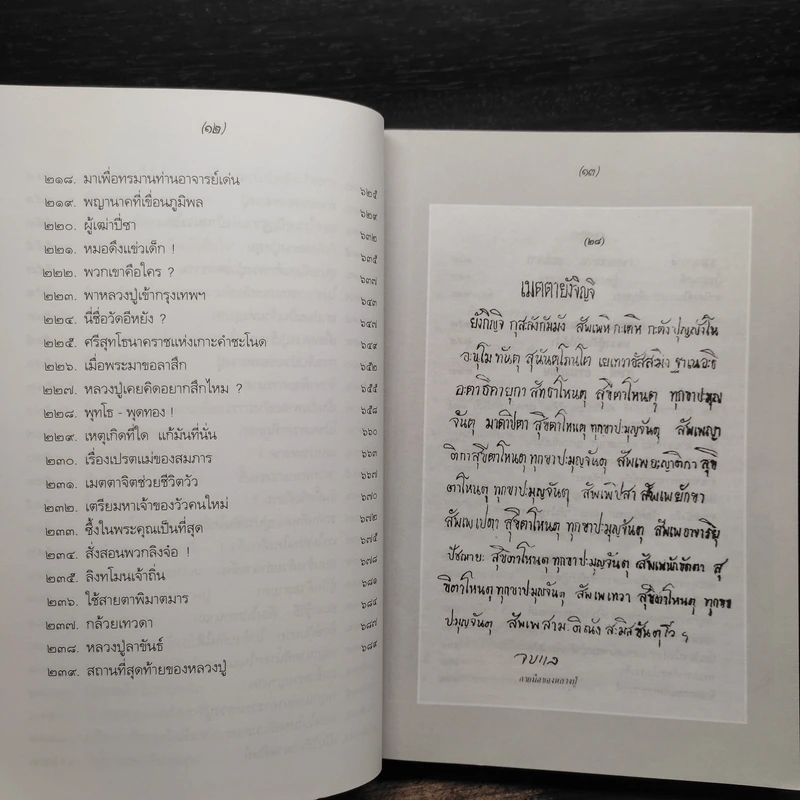 (๑๒)
๒๑๘. มาเพื่อทรมานท่านอาจารย์เด่น ๖๒๕
๒๑๙. พญานาคที่เขื่อนภูมิพล ๖๒๙
๒๒๐. ผู้เฒ่าปี่ซา ๖๓๒
๒๒๑. หมอดึงแข่วเด็ก ! ๖๓๕
๒๒๒. พวกเขาคือใคร ? ๖๓๗
๒๒๓. พาหลวงปู่เข้ากรุงเทพฯ ๖๔๓
๒๒๔. นี่ชื่อวัดอีหยัง ? ๖๔๗
๒๒๕. ศรีสุทโธนาคราชแห่งเกาะคำชะโนด ๖๔๙
๒๒๖. เมื่อพระมาขอลาสึก ๖๕๒
๒๒๗. หลวงปู่เคยคิดอยากสึกไหม ? ๖๕๕
๒๒๘. พุทโธ - พุดทอง ! ๖๕๘
๒๒๙. เหตุเกิดที่ใด แก้มันที่นั่น ๖๖๐
๒๓๐. เรื่องเปรตแม่ของสมภาร ๖๖๓
๒๓๑. เมตตาจิตช่วยชีวิตวัว ๖๖๗
๒๓๒. เตรียมหาเจ้าของวัวคนใหม่ ๖๗๐
๒๓๓. ซึ้งในพระคุณเป็นที่สุด ๖๗๒
๒๓๔. สั่งสอนพวกลิงจ๋อ ! ๖๗๕
๒๓๕. ลิงทโมนเจ้าถิ่น ๖๗๘
๒๓๖. ใช้สายตาพิมาตมาร ๖๘๑
๒๓๗. กล้วยเทวดา ๖๘๔
๒๓๘. หลวงปู่ลาขันธ์ ๖๘๗
๒๓๙. สถานที่สุดท้ายของหลวงปู่ ๖๘๙
(๑๓)
(๒๘)
เมตตายังจิญจิ
ยังกิญจิ กุสะลังกัมมัง สัพเพหิ กะเตหิ กะตังปุญญังโน
อะนุโม ทันตุ สุนันตุโภนโต เย เทวาอัสสมิง ฐาเนอะธิ
อะตาธิคายุกา สัทธาโหนตุ สุขิตาโหนตุ ทุกขาปะมุญ
จันตุ มาตาปิตา สุขิตาโหนตุ ทุกขาปะมุญจันตุ สัพเพญา
ติกาสุขิตาโหนตุ ทุกขาปะมุญจันตุ สัพเพอะญาติกา สุขิ
ตาโหนตุ ทุกขาปะมุญจันตุ สัพเพปิสา สัพเพยักขา
สัพเพเปตา สุขิตาโหนตุ ทุกขาปะมุญจันตุ สัพเพอาจาริยุ
ปัชฌายะ สุขิตาโหนตุ ทุกขาปะมุญจันตุ สัพเพนักขัตตา สุ
ขิตาโหนตุ ทุกขาปะมุญจันตุ สัพเพเทวา สุขิตาโหนตุ ทุกขา
ปมุญจันตุ สัพเพสาม ติณัง สะมิสชันตุโว ฯ
จบแล
ลายมือของหลวงปู่